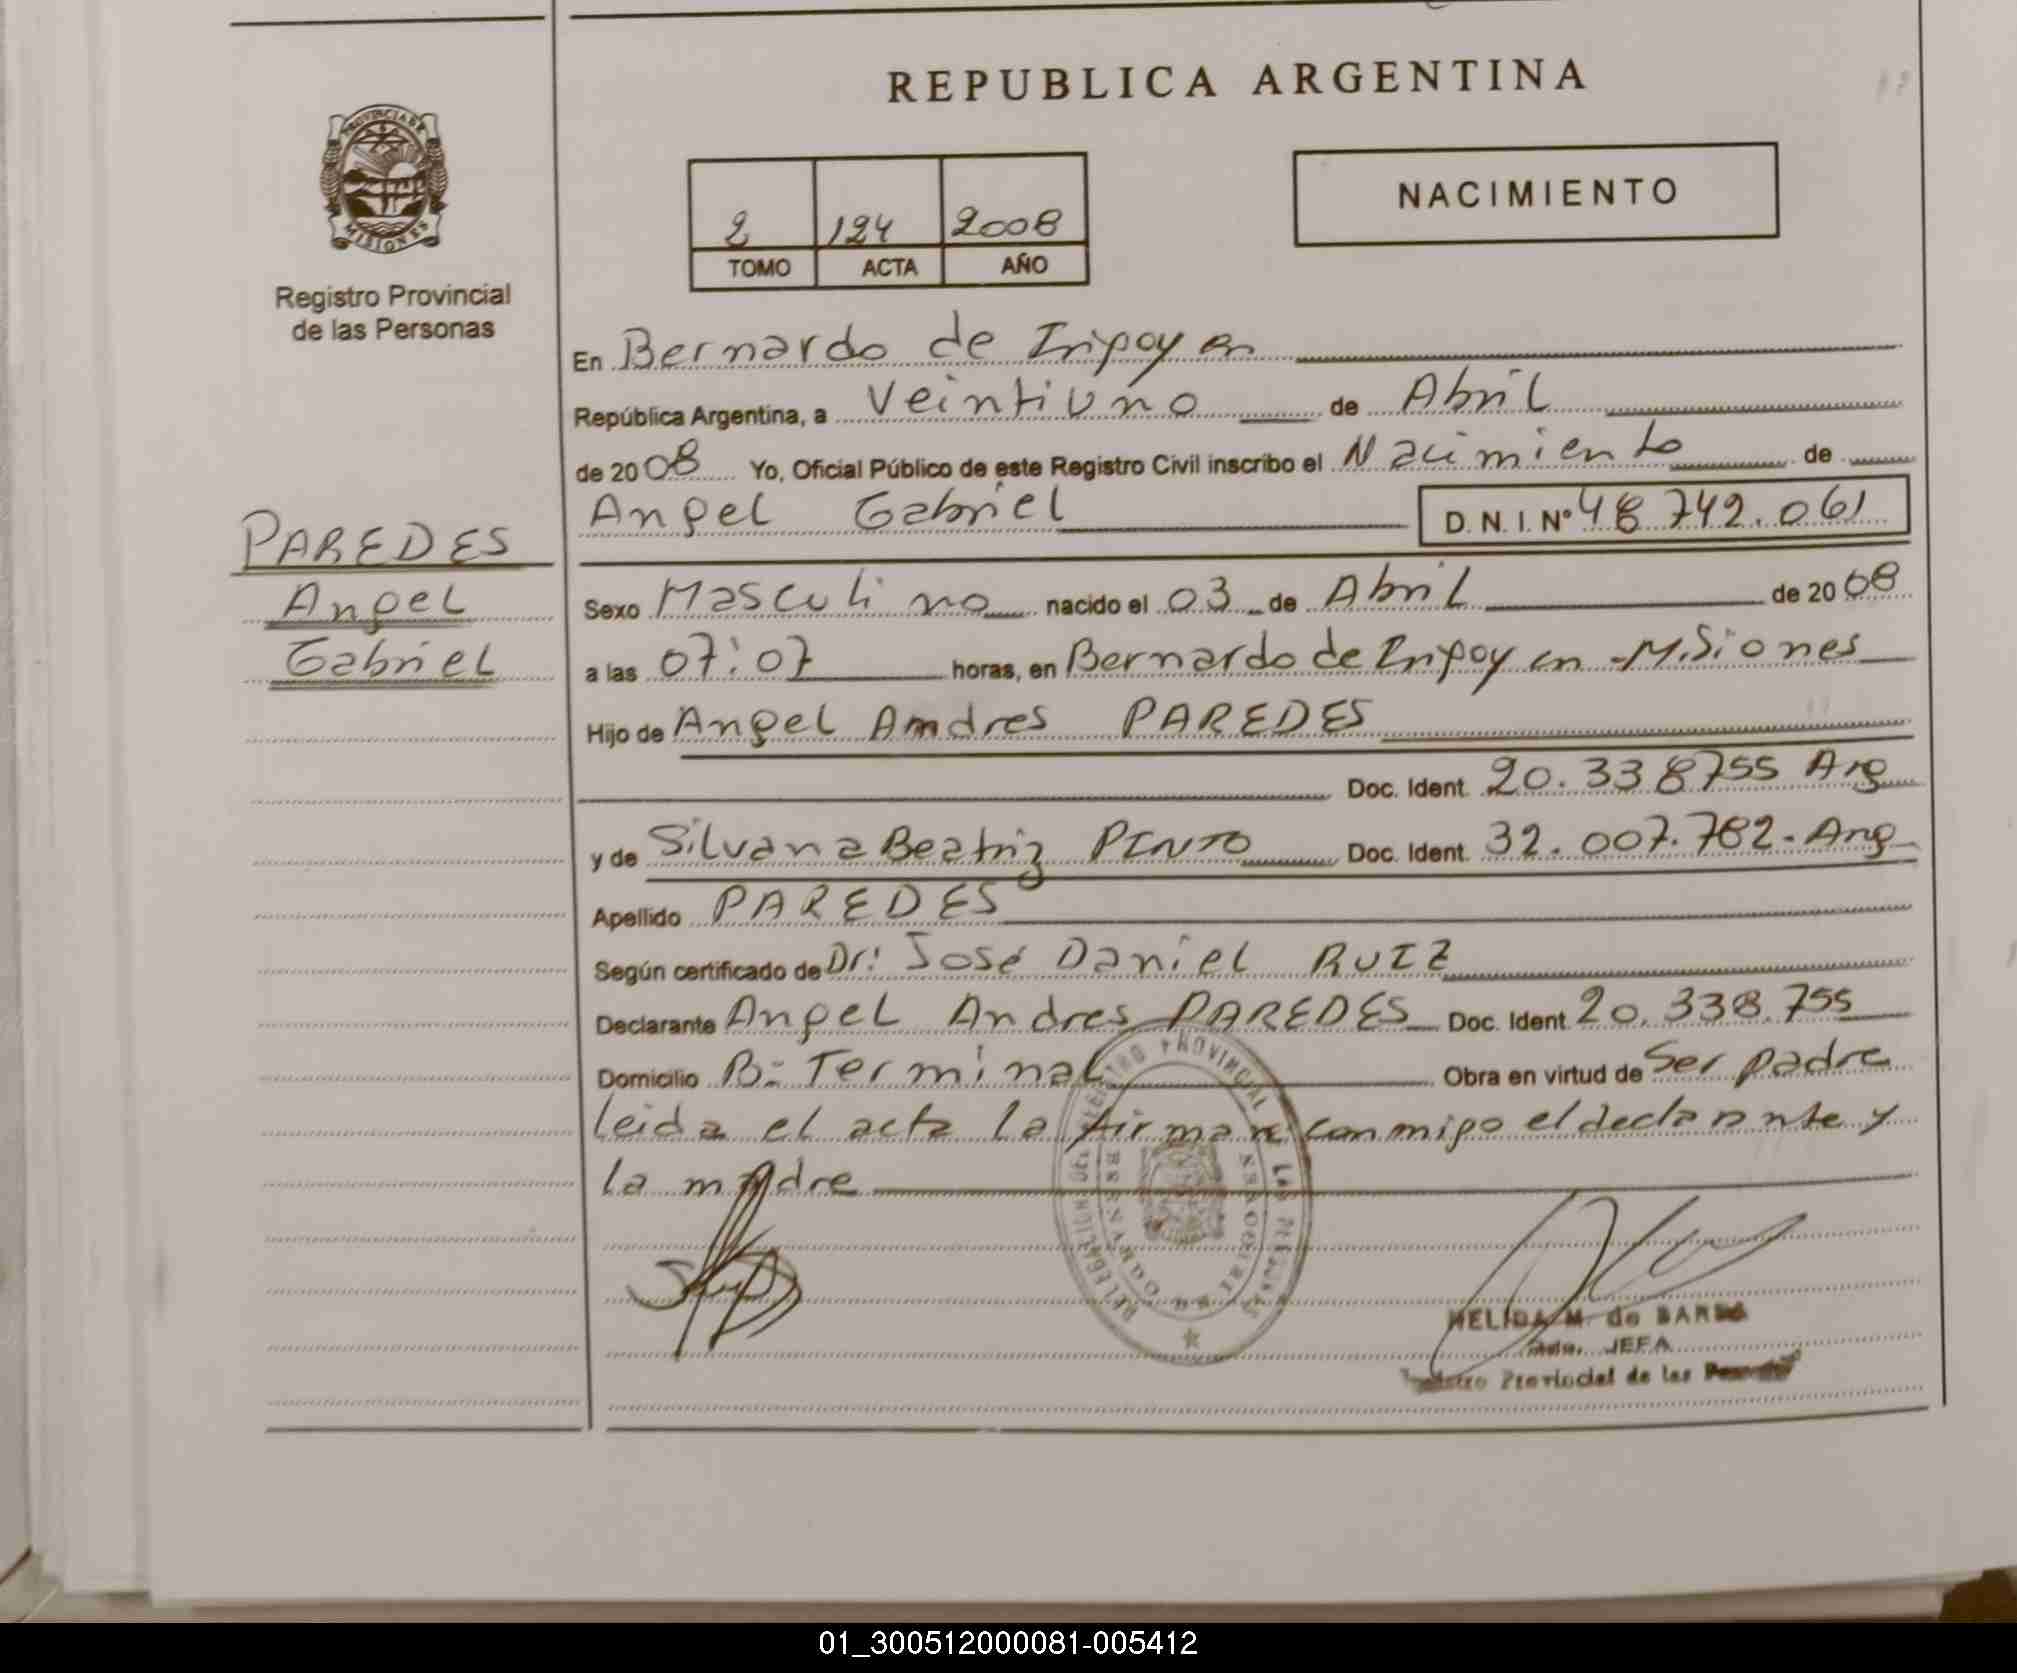 REPUBLICA ARGENTINA
PROVINCIA DE
MISIONES
Registro Provincial
de las Personas
NACIMIENTO
2 124 2008
TOMO ACTA AÑO
En Bernardo de Irigoyen
República Argentina, a Veintiuno de Abril
de 2008 Yo, Oficial Público de este Registro Civil inscribo el Nacimiento de
Angel Gabriel D. N. I. Nº 48 742.061
PAREDES
Angel
Gabriel
Sexo Masculino nacido el 03 de Abril de 2008
a las 07:07 horas, en Bernardo de Irigoyen - Misiones
Hijo de Angel Andres PAREDES
Doc. Ident. 20.338755 Arg
y de Silvana Beatriz PINTO Doc. Ident. 32.007.782- Arg
Apellido PAREDES
Según certificado de Dr: José Daniel RUIZ
Declarante Angel Andres PAREDES Doc. Ident. 20.338.755
Domicilio B: Terminal Obra en virtud de Ser padre
leida el acta la firman conmigo el declarante y
la madre
DELEGACION DEL REGISTRO PROVINCIAL DE LAS PERSONAS
NELIDA M. de
JEFA
Provincial de las
01_300512000081-005412